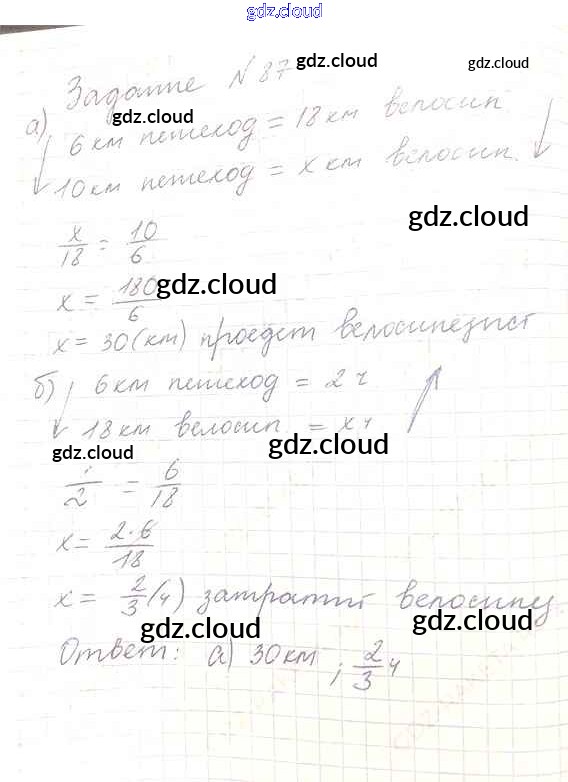 gdz.cloud
gdz.cloud
gdz.cloud
Задание №87
gdz.cloud
а) 6 км пешеход = 18 км велосип.
10 км пешеход = x км велосип.
gdz.cloud
x/18 = 10/6
gdz.cloud
x = 180/6
x = 30 (км) проедет велосипедист
gdz.cloud
б) 6 км пешеход = 2 ч
18 км велосип = x ч
gdz.cloud
gdz.cloud
/2 = 6/18
x = 2·6/18
x = 2/3 (ч) затратит велосипед
gdz.cloud
gdz.cloud
Ответ: а) 30 км ; 2/3 ч
gdz.cloud
gdz.cloud